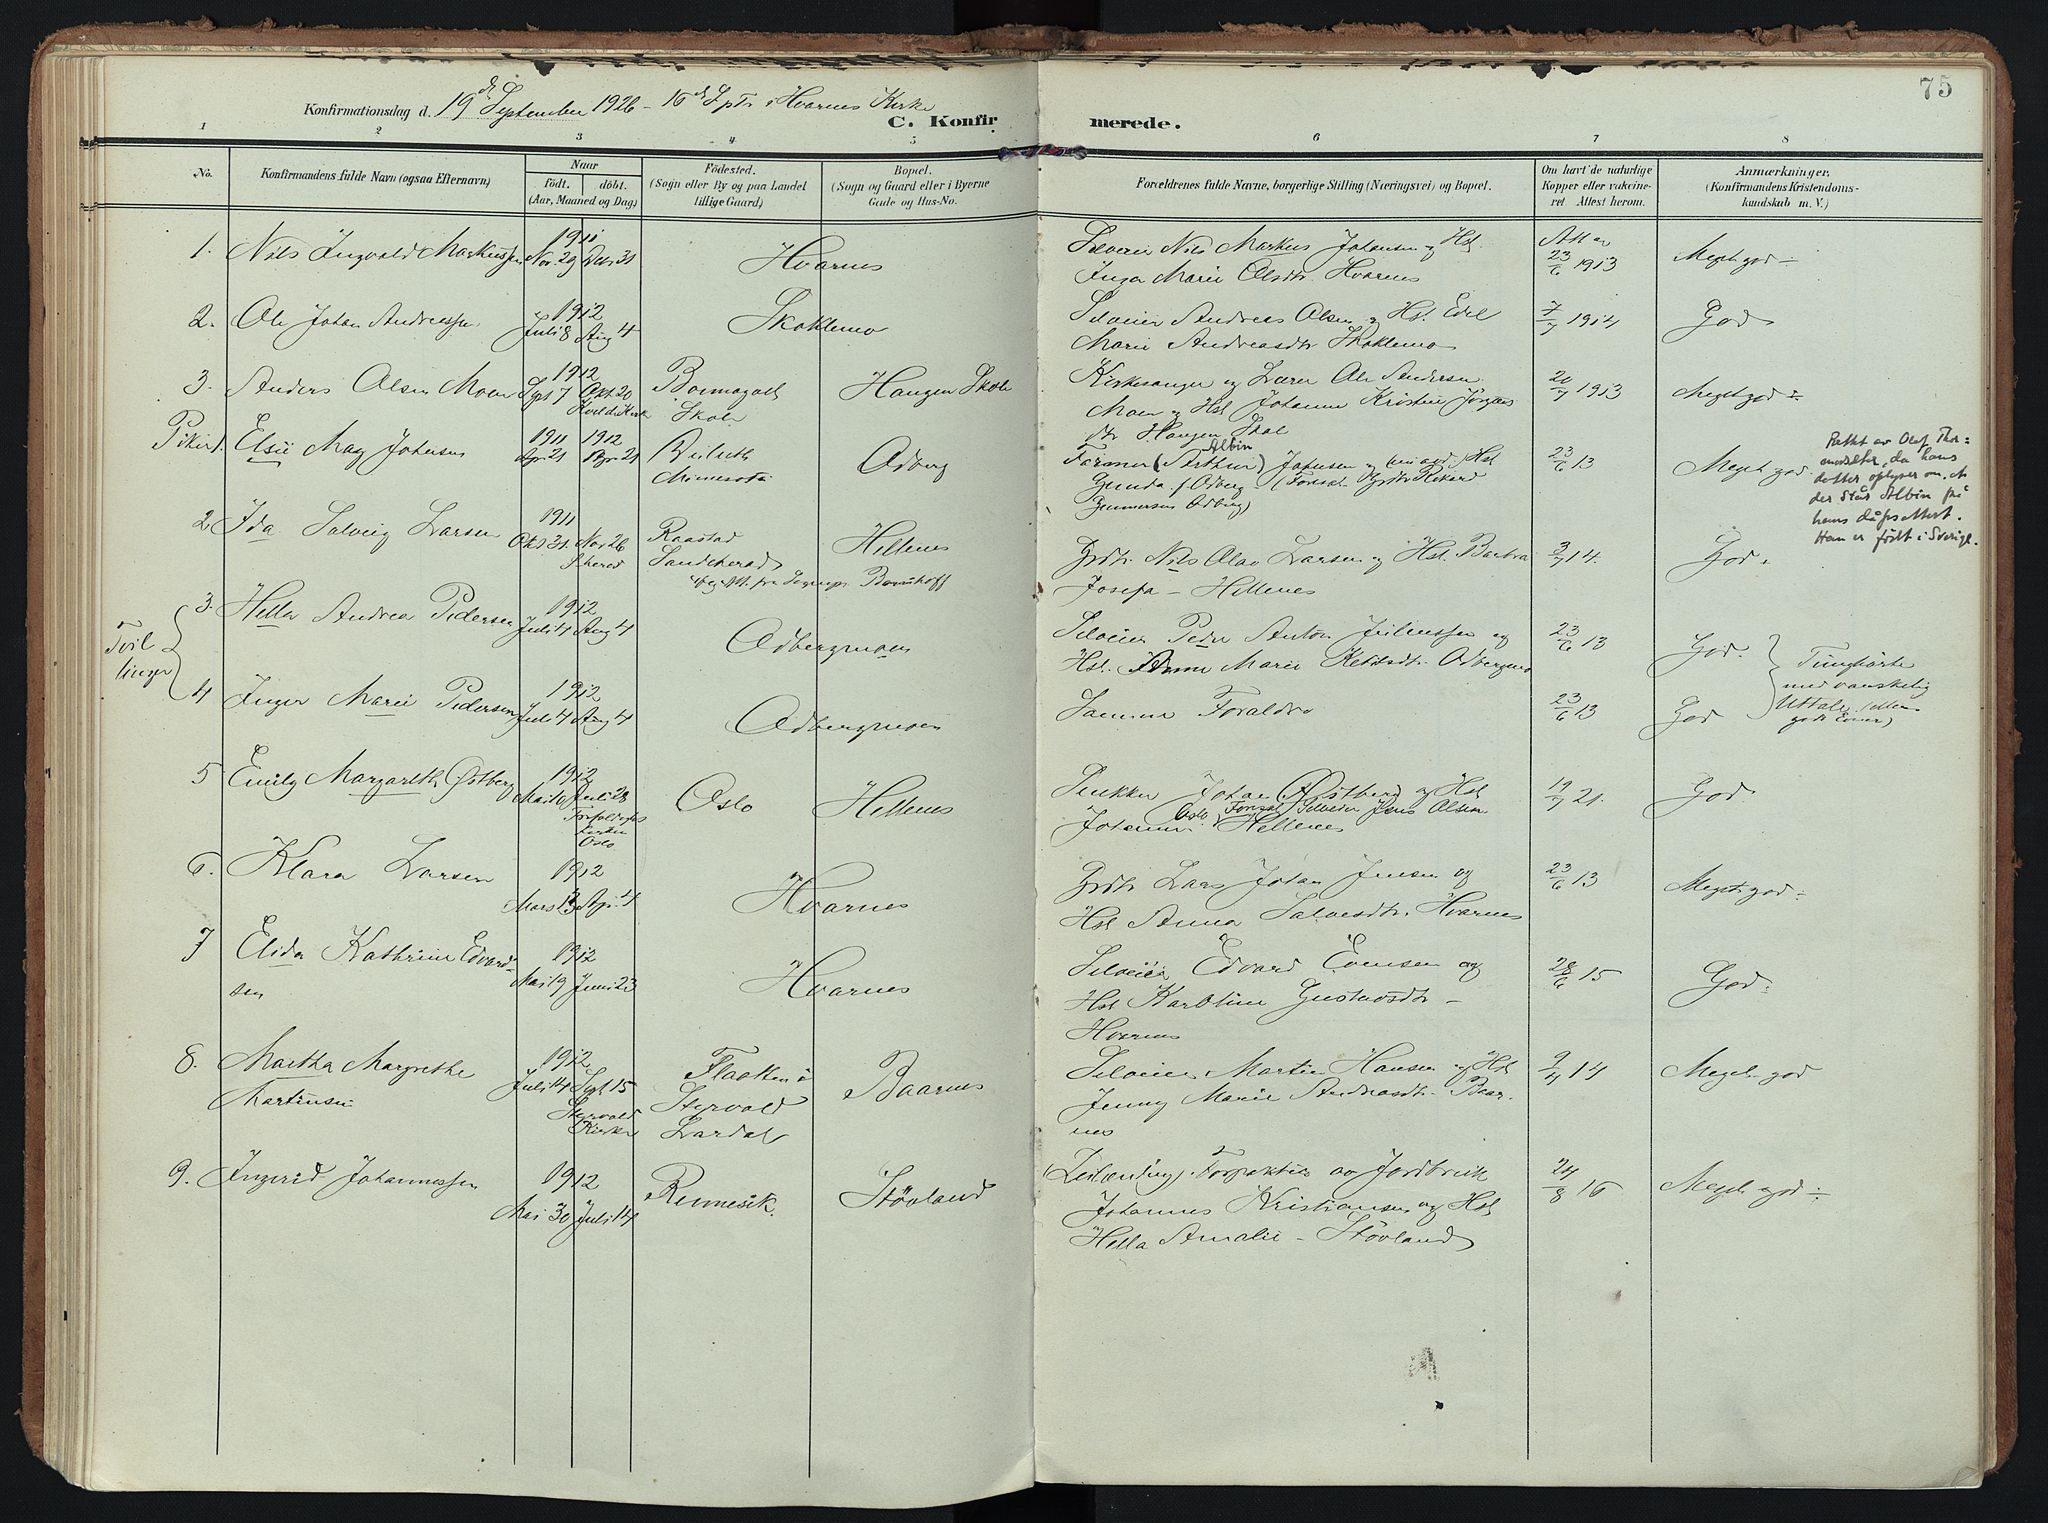 75
Konfirmationsdag d. 19 de September 1926 - 16 S.p.Tr. i Hvarnes Kirke
C. Konfirmerede.
1 2 3 4 5 6 7 8
No.
Konfirmandens fulde Navn (ogsaa Efternavn)
Naar
födt. döbt.
(Aar, Maaned og Dag)
Födested.
(Sogn eller By og paa Landet
tillige Gaard)
Bopæl.
(Sogn og Gaard eller i Byerne
Gade og Hus-No.
Forældrenes fulde Navne, borgerlige Stilling (Næringsvei) og Bopæl.
Om havt de naturlige
Kopper eller vakcine-
ret Attest herom.
Anmærkninger.
(Konfirmandens Kristendoms-
kundskab m. V.)
1. Nils Ingvald Markussen
1911
Nov. 29 Dec. 31
Hvarnes
Selveier Nils Markus Johansen og Hst.
Inga Marie Olsdtr. Hvarnes
Att. av
23/6 1913
Meget god
2. Ole Johan Andreassen
1912
Juli 8 Aug 4
Skoklemo
Selveier Andreas Olsen og Hst. Edel
Marie Andreasdtr. Skoklemo
7/7 1914
God
3. Anders Olsen Moen
1912
Sept 7 Okt 20
Skole
Haugen Skole
Kirkesanger og Lærer Ole Andersen
Moen og Hst Johanne Kristine Jørgens
dtr Haugen Skol
20/7 1913
Meget god
Piker 1. Elsie May Johnsen
1911 1912
Apr. 21 Apr 21
Duluth
Minesota
Odberg
Albin
Farmer (Arthur) Johnsen og Hst
Gunda f. Odberg - (Forsat. Rikard
Gunnersen Odberg)
23/6 13
Meget god
Rettet av Olaf Thor=
modsæter, da hans
datter oplyser om, at
der står Albin på
hans dåpsattest.
Han er født i Sverige.
2 Ida Solveig Larsen
1911
Okt 31. Nov. 26
Sherad
Raastad
Sandeherad
Hellenes
Grdbr. Nils Olav Larsen og Hst. Barbra
Josefa - Hellenes
3/7 14.
God
Tvil
linger
3. Hella Andrea Pedersen
1912
Juli 4 Aug 4
Odbergmoen
Selveier Peder Anton Juliussen og
Hst. Anne Marie Ketilsdtr. Odbergmo
23/6 13
God.
Tunghørte
med vanskelig
Uttale.
4 Inger Marie Pedersen
1912
Juli 4 Aug 4
Odbergmoen
Samme Foraldre
23/6 13
God
5 Emily Margareth Østberg
1912
Mai 10 Juli 28
Kirken
Oslo
Oslo
Hellenes
Snekker Johan Østberg og Hst
Oslo Forsat Selveier Jens Olsen
Johanne Hellenes
19/7 21.
God
6. Klara Larsen
1912
Mars 13 Apr. 4
Hvarnes
Grdbr Lars Johan Jensen og
Hst Anna Salvesdtr. Hvarnes
23/6 13
Meget god
7 Elida Kathrine Edvard-
sen
1912
Mai 19 Juni 23
Hvarnes
Selveier Edvard Evensen og
Hst Karoline Gustavsdtr -
Hvarnes
28/6 15
God
8. Martha Margrethe
Martinsen
1912
Juli 14 Sept 15
Styrvold
Kirke
Flaatten i
Styrvold
Lardal
Baarnes
Selveier Martin Hansen og Hst
Jenny Marie Andreasdtr. Baar-
nes
Meget god
9. Ingerid Johannessen
1912
Mai 30 Juli 14
Rimmesik
Stövland
(Leilænding). Forpakter av Jordbruk
Johannes Kristiansen og Hst
Hella Amalie - Stövland
24/8 16
Meget god